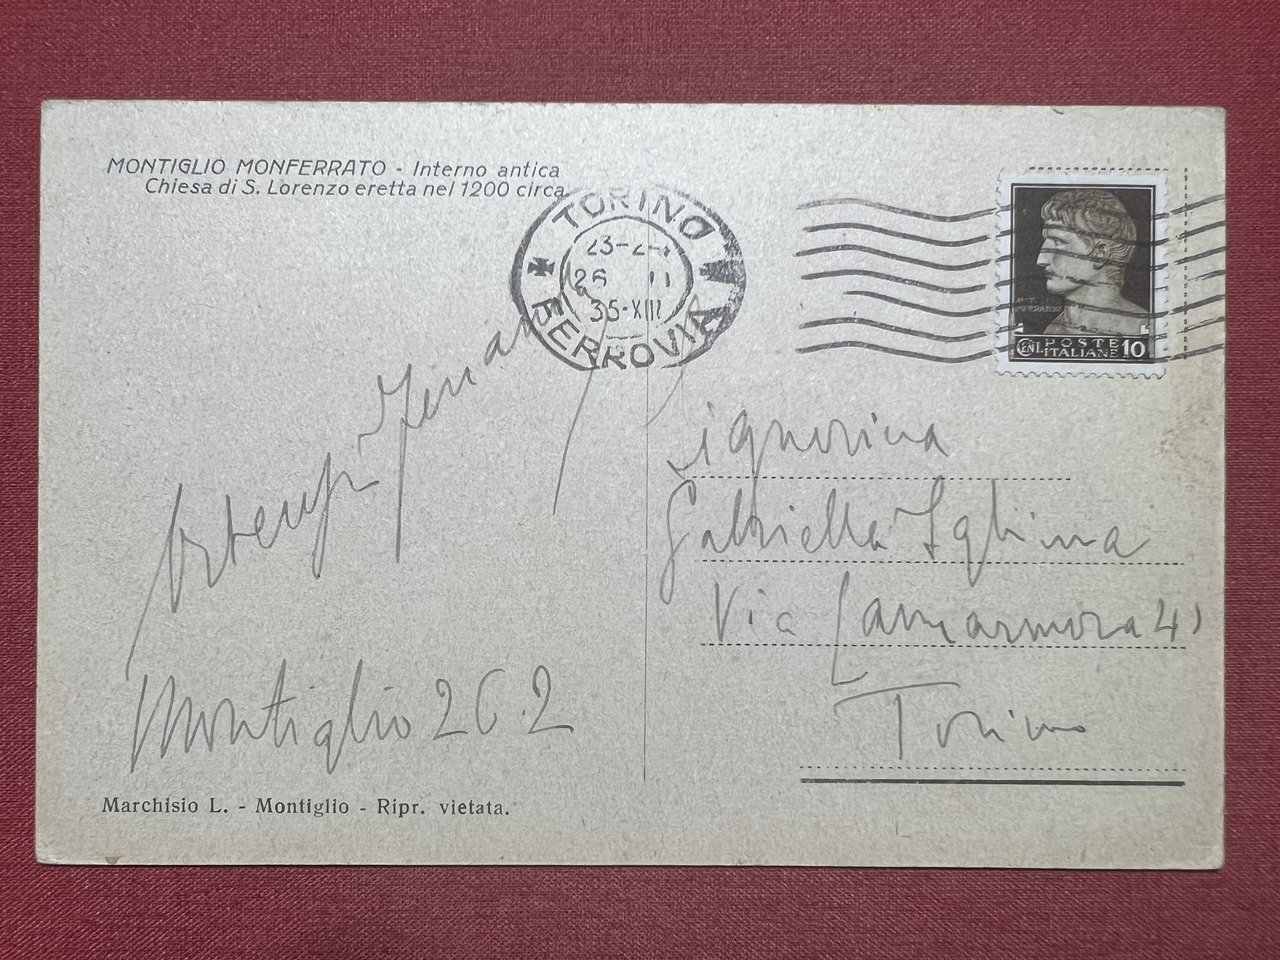 MONTIGLIO MONFERRATO - Interno antica
Chiesa di S. Lorenzo eretta nel 1200 circa
TORINO
23-24
26 II
35-XIII
FERROVIA
IMPERATOR
CENT. POSTE ITALIANE 10
Signorina
Gabriella
Via Lamarmora 41
Torino
Montiglio 26.2
Marchisio L. - Montiglio - Ripr. vietata.